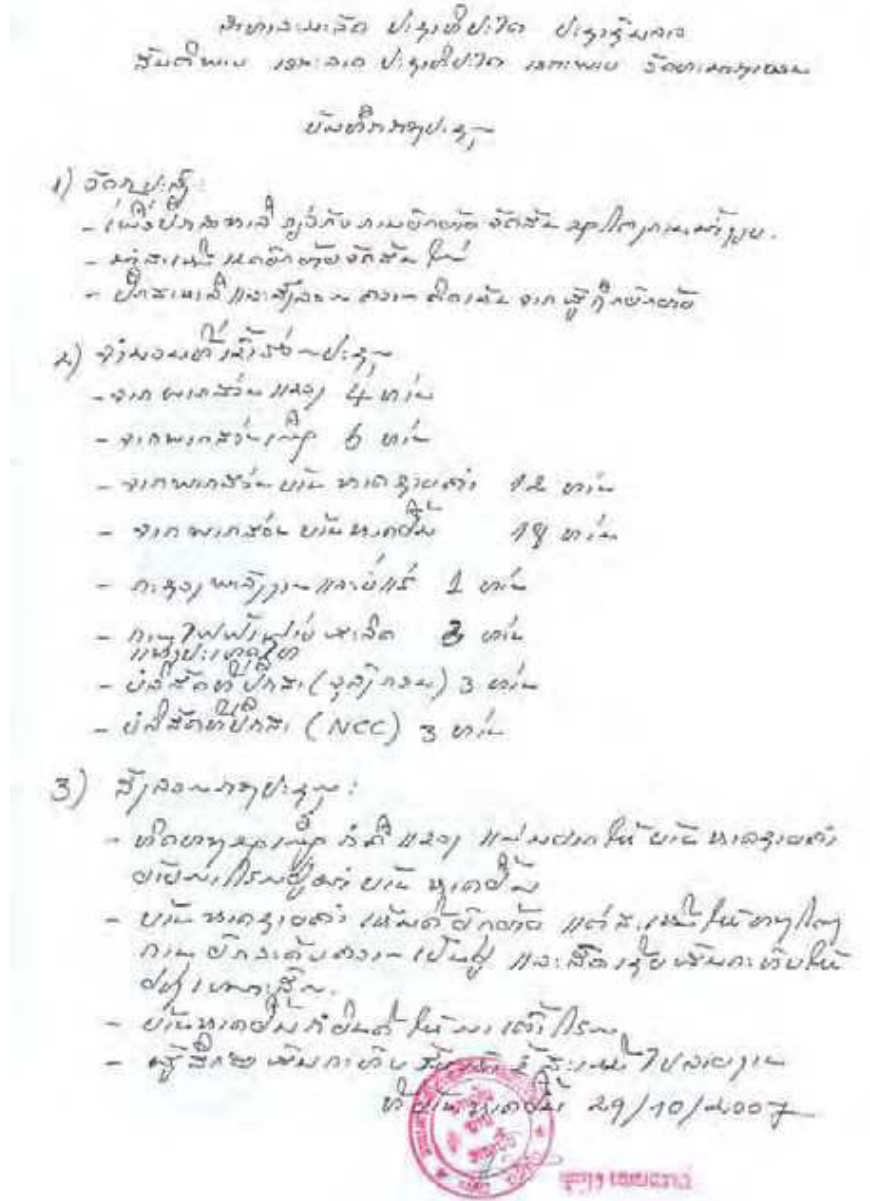 ສາທາລະນະລັດ ປະຊາທິປະໄຕ ປະຊາຊົນລາວ
ສັນຕິພາບ ເອກະລາດ ປະຊາທິປະໄຕ ເອກະພາບ ວັດທະນາຖາວອນ
ບັນທຶກກອງປະຊຸມ
1) ຈຸດປະສົງ:
- ເພື່ອປຶກສາຫາລື ກ່ຽວກັບ ການຍົກຍ້າຍ ຈັດສັນ ຂອງໂຄງການ
- ສະເໜີ ເຂດຍົກຍ້າຍຈັດສັນ ໃໝ່
- ປຶກສາຫາລື ແລະ ຄວາມ ຄິດເຫັນ ຈາກ ຜູ້ຖືກຍົກຍ້າຍ
2) ຈຳນວນຜູ້ເຂົ້າຮ່ວມປະຊຸມ
- ຈາກ ພາກສ່ວນ ແຂວງ 4 ທ່ານ
- ຈາກພາກສ່ວນເມືອງ 6 ທ່ານ
- ຈາກພາກສ່ວນ ບ້ານ ຫາດຊາຍຄຳ 12 ທ່ານ
- ຈາກ ພາກສ່ວນ ບ້ານ ຫາດຢື້ນ 18 ທ່ານ
- ກະຊວງ ພະລັງງານ ແລະ ບໍ່ແຮ່ 1 ທ່ານ
- ການໄຟຟ້າຝ່າຍ ຜະລິດ 3 ທ່ານ
ແຫ່ງປະເທດໄທ
- ບໍລິສັດທີ່ປຶກສາ (ຈຸລາລົງກອນ) 3 ທ່ານ
- ບໍລິສັດທີ່ປຶກສາ (NCC) 3 ທ່ານ
3) ສັງລວມກອງປະຊຸມ:
- ທິດທາງຂອງເມືອງ ກໍຄື ແຂວງ ແມ່ນຢາກໃຫ້ ບ້ານ ຫາດຊາຍຄຳ
ບ້ານ ຫາດຢື້ນ
- ບ້ານ ຫາດຊາຍຄຳ ເຫັນດີ ຍົກຍ້າຍ ແຕ່ ສະເໜີ ໃຫ້ ທາງໂຄງ
ການ ຍົກລະດັບຄວາມ ເປັນຢູ່ ແລະ ຊົດເຊີຍ ຜົນກະທົບໃຫ້
ຢ່າງ ເໝາະສົມ.
- ບ້ານຫາດຢື້ນກໍຍິນດີ ໃຫ້ ມາ ເຕົ້າໂຮມ
- ຜົນກະທົບ
ທີ່ບ້ານ ຫາດຢື້ນ 29/10/2007